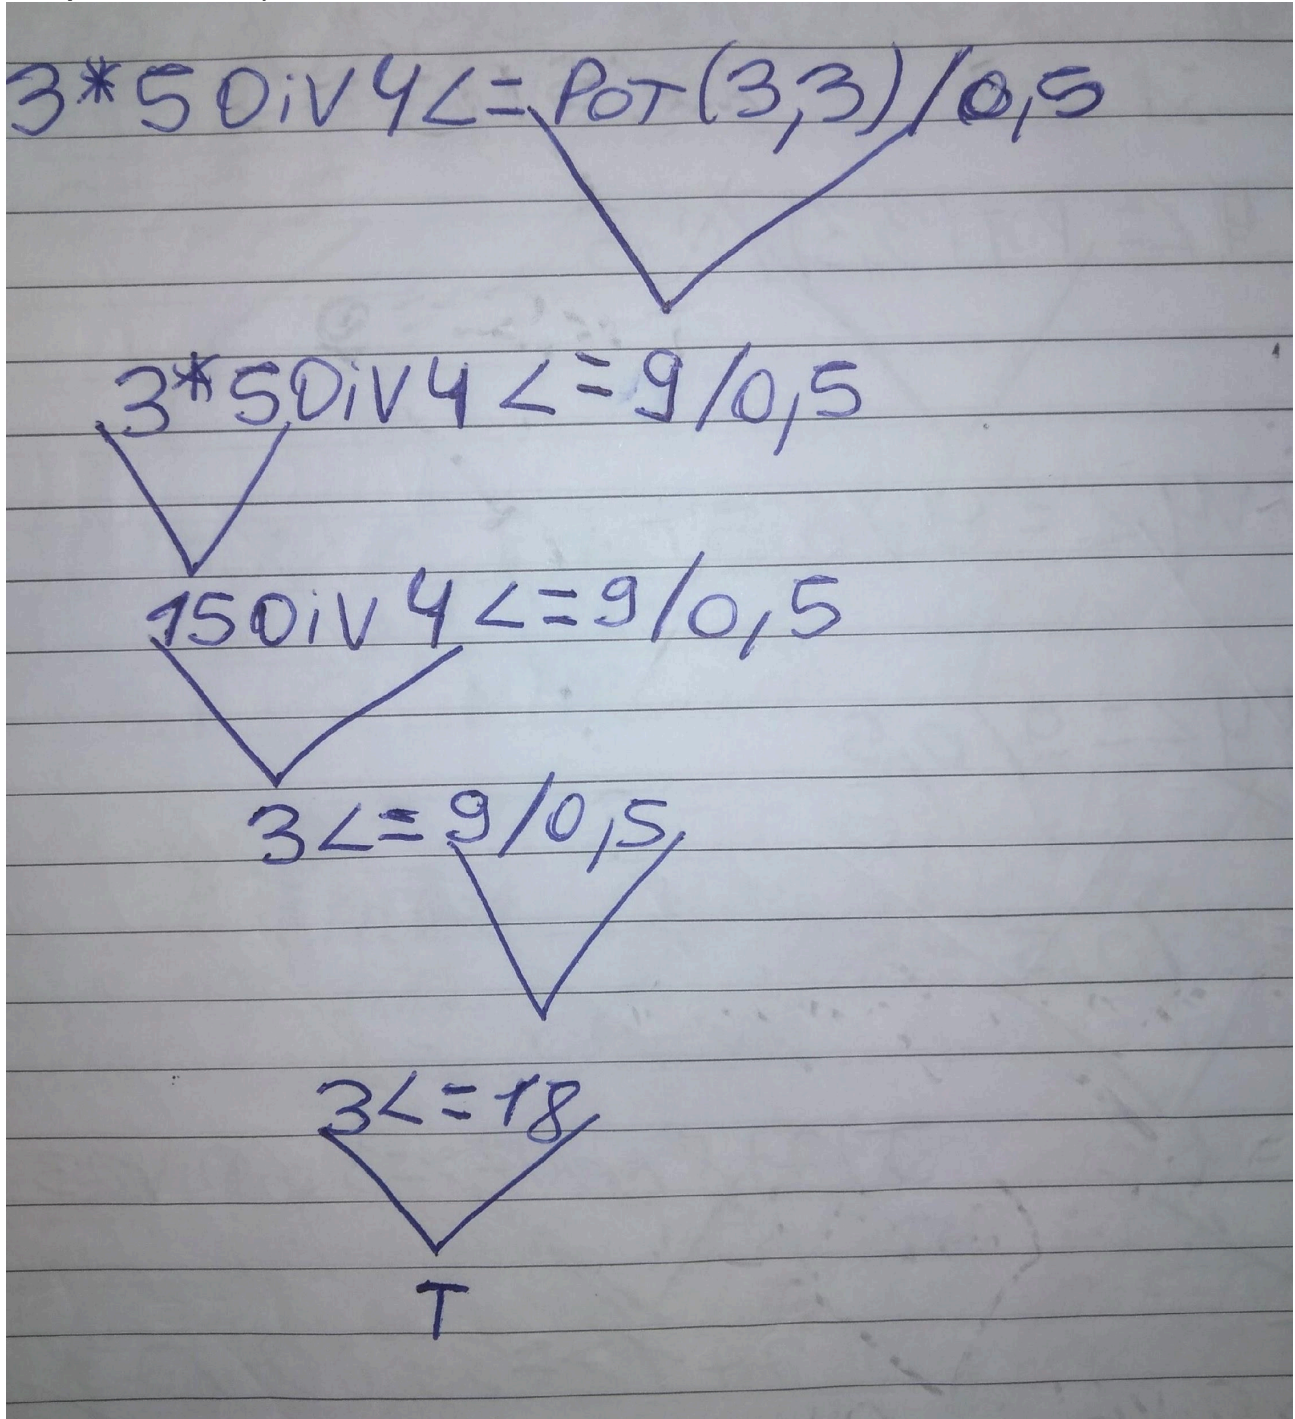 3*5DiV4<=POT(3,3)/0,5
3*5DiV4<=9/0,5
15DiV4<=9/0,5
3<=9/0,5
3<=18
T